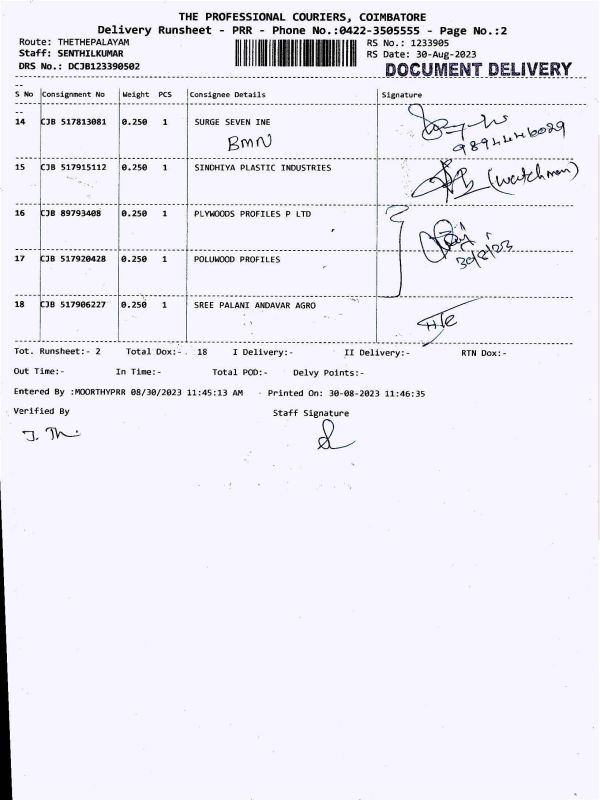 THE PROFESSIONAL COURIERS, COIMBATORE
Delivery Runsheet - PRR - Phone No.:0422-3505555 - Page No.:2
Route: THETHEPALAYAM RS No.: 1233905
Staff: SENTHILKUMAR RS Date: 30-Aug-2023
DRS No.: DCJB123390502 DOCUMENT DELIVERY
S No Consignment No Weight PCS Consignee Details Signature
14 CJB 517813081 0.250 1 SURGE SEVEN INE
BMN
9894446029
15 CJB 517915112 0.250 1 SINDHIYA PLASTIC INDUSTRIES (watchman)
16 CJB 89793408 0.250 1 PLYWOODS PROFILES P LTD
30/8/23
17 CJB 517920428 0.250 1 POLUWOOD PROFILES
18 CJB 517906227 0.250 1 SREE PALANI ANDAVAR AGRO
Tot. Runsheet:- 2 Total Dox:- 18 I Delivery:- II Delivery:- RTN Dox:-
Out Time:- In Time:- Total POD:- Delvy Points:-
Entered By :MOORTHYPRR 08/30/2023 11:45:13 AM - Printed On: 30-08-2023 11:46:35
Verified By Staff Signature